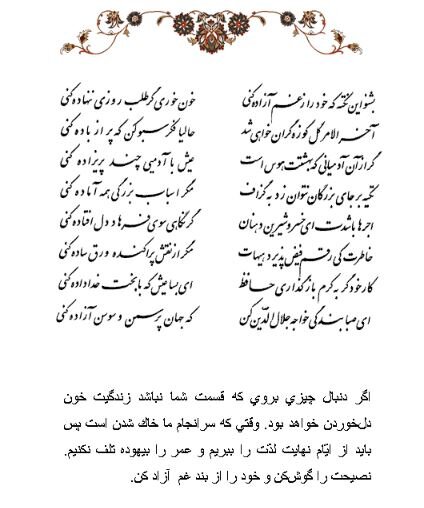 بشنو این نکته که خود را ز غم آزاده کنی	خون خوری گر طلب روزی ننهاده کنی
آخر الامر گل کوزه گران خواهی شد	حالیا فکر سبو کن که پر از باده کنی
گر از آن آدمیانی که بهشتت هوس است	عیش با آدمیی چند پریزاده کنی
تکیه بر جای بزرگان نتوان زد به گزاف	مگر اسباب بزرگی همه آماده کنی
اجرها باشدت ای خسرو شیرین دهنان	گر نگاهی سوی فرهاد دل افتاده کنی
خاطرت کی رقم فیض پذیرد هیهات	مگر از نقش پراکنده ورق ساده کنی
کار خود گر به کرم بازگذاری حافظ	ای بسا عیش که با بخت خداداده کنی
ای صبا بندگی خواجه جلال الدین کن	که جهان پر سمن و سوسن آزاده کنی
اگر دنبال چيزي بروي که قسمت شما نباشد زندگيت خون
دل‌خوردن خواهد بود. وقتي که سرانجام ما خاك شدن است پس
بايد از ايّام نهايت لذّت را ببريم و عمر را بيهوده تلف نکنيم.
نصيحت را گوش‌کن و خود را از بند غم آزاد کن.